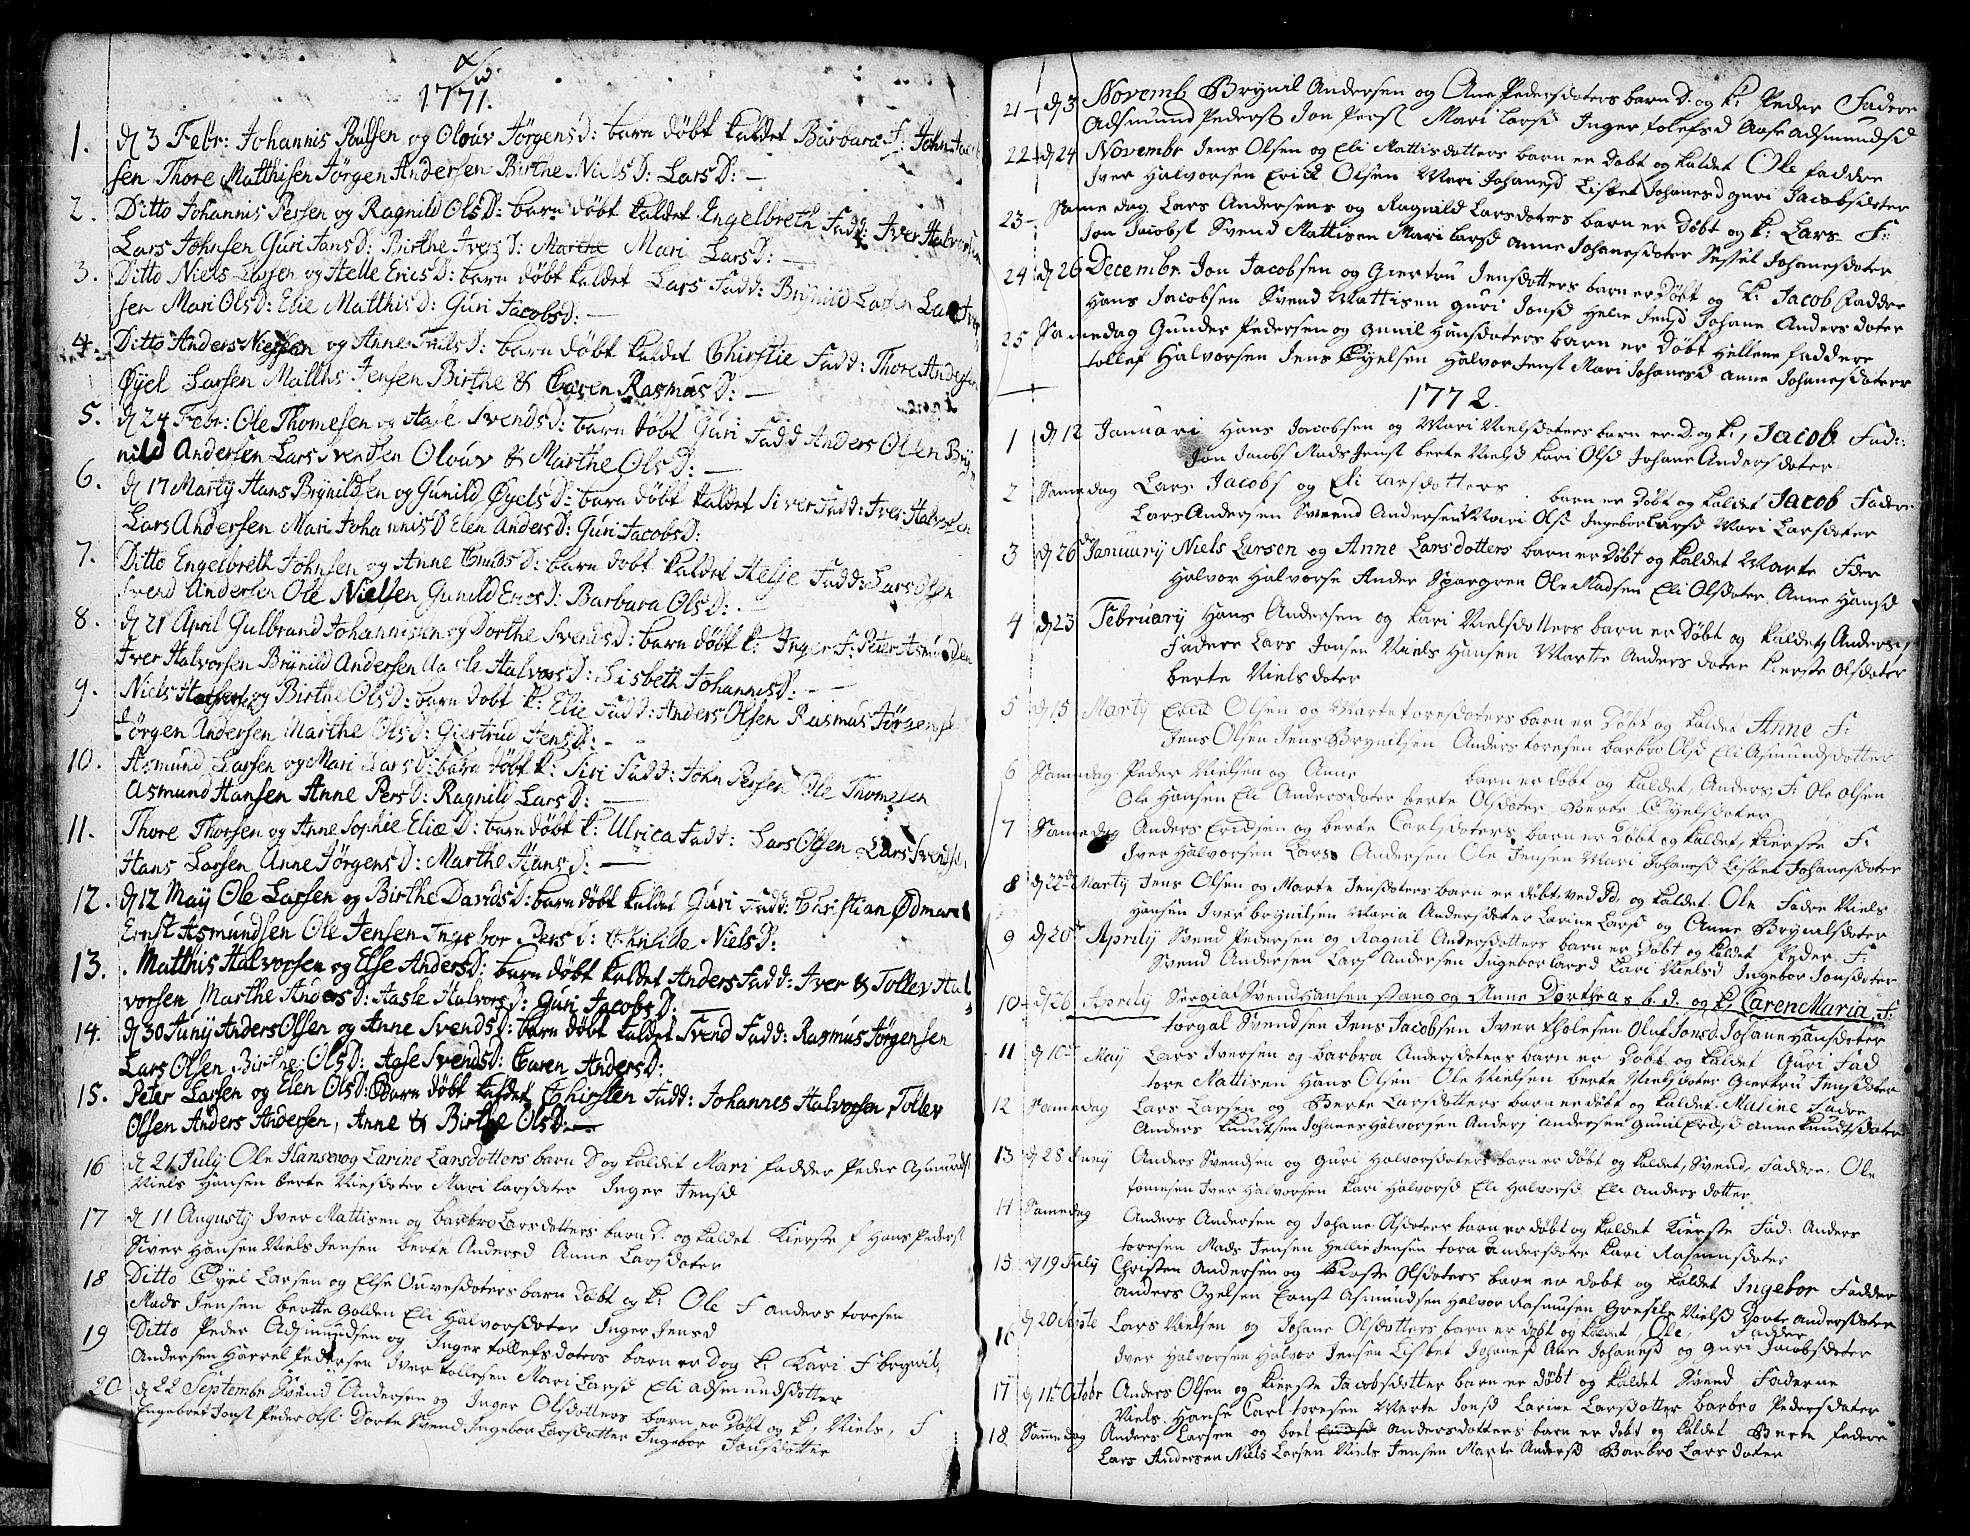 1771.
1. d 3 Febr: Johannis Poulsen og Olouv Jörgens D: barn döbt kaldet Barbara F: John Jacob
sen Thore Matthisen Jörgen Andersen Birthe Niels D: Lars D: —
2. Ditto Johannis Persen og Ragnild Ols D: barn döbt kaldet Ingelbreth Fadd: Iver Halvorsen
Lars Johnsen Guri Jans D: Birthe Ivers D: Marthe Mari Lars D: —
3. Ditto Niels Larsen og Aelle Erics D: barn döbt kaldet Lars Fadd: Brynild Larsen Lars Iver
sen Mari Ols D: Elie Matthis D: Guri Jacobs D: —
4. Ditto Anders Nielsen og Anne Juls D: barn döbt kaldet Chirstie Fadd: Thore Andersen
Öyel Larsen Matths Jensen Birthe & Caren Rasmus D: —
5. d 24 Febr: Ole Thomesen og Aase Svends D: barn döbt Guri Fadd Anders Olsen Bry
nild Andersen Lars Svendsen Olouv & Marthe Ols D: —
6. d 17 Martij Hans Brynildsen og Gunild Öyels D: barn döbt kaldet Siver Fadd: Iver Halvorsen
Lars Andersen Mari Johannis D Elen Anders D: Guri Jacobs D:
7. Ditto Engelbreth Johnsen og Anne Cnuds D: barn dobt kaldet Helje Fadd: Lars Olsen
Svend Andersen Ole Nielsen Gunild Erics D: Barbara Ols D: —
8. d 21 April Gulbrand Johannissen og Dorthe Svends D: barn döbt k: Inger F: Peter Asmunden
Iver Halvorsen Brynild Andersen Aasle Halvors D: Lisbeth Johannis D: —
9. Niels og Birthe Ols D: barn dobt k: Elie Fadd: Anders Olsen Rasmus Jörgens
Jörgen Andersen Marthe Ols D: Giertrud Jens D: —
10. Asmund Larsen og Mari Lars D: barn döbt k: Siri Fadd: John Persen Ole Thomesen
Asmund Hansen Anne Pers D: Ragnild Lars D: —
11. Thore Thorsen og Anne Sophie Eliæ D: barn döbt k: Ulrica Fadd: Lars Olsen Lars Svendsen
Hans Larsen Anne Jörgens D: Marthe Hans D: —
12. d 12 Maij Ole Larsen og Birthe Davids D: barn döbt kaldet Guri Fadd: Christian Ödmark
Ernst Asmundsen Ole Jensen Ingebor Pers D: Niels D:
13. Matthis Halvorsen og Else Anders D: barn döbt kaldet Anders Fadd: Iver & Tollev Hal
vorsen Marthe Anders D: Aasle Halvors D: Guri Jacobs D: —
14. d 30 Junij Anders Olsen og Anne Svends D: barn döbt kaldet Svend Fadd: Rasmus Jörgensen
Lars Olsen Birthe Ols D: Aase Svends D: Caren Anders D:
15. Peter Larsen og Elen Ols D: barn döbt kaldet Chirsten Fadd: Johannes Halvorsen Tollev
Olsen Anders Andersen, Anne & Birthe Ols D: —
16 d 21 July Ole Hansen og Larine Larsdotters barn D og kaldit Mari fadder Peder Asmunds
Niels Hansen berte Nielsdoter Mari larsdoter Inger Jensd
17 d 11 Augusty Iver Mattisen og barbro Larsdotters barn D. og kaldet Kierste f Hans Peders
Siver Hansen Niels Jensen berte Andersd Anne Larsdoter
18 Ditto Öyel Larsen og Else Ouvesdoters barn Döbt og k: Ole F anders toresen
Mads Jensen bertte Golden Eli Halvorsdoter Inger Jensd
19 Ditto Peder Adsmundsen og Inger tollefsdoters barn er D og k: Kari F brynil
Andersen Harrel Pedersen Iver tollesen Mari Larsd Eli adsmundsdotter
20 d 22 Septembr Svend Andersen og Inger Olsdotters barn er Döbt og k, Niels, F
Engebret Jonst Peder olst Dorte Svend Ingebor Larsdotter Ingebor Jonsdotter
21 d 3 Novemb Brynil Andersen og Ane Pedersdoters barn D. og k: Peder Fadere
Adsmund Peders Jon Pers Mari Larsd Inger tolefsd Aase adsmundsd
22 d 24 Novembr Jens Olsen og Eli Mattisdotters barn er Dobt og kaldet Ole faddre
Iver Halvorsen Erick Olsen Mari Johanesd Lisbet Johanesd guri Jacobsdoter
23 Same dag Lars Andersens og Ragnild Larsdoters barn er Döbt og k: Lars F:
Jon Jacobst Svend Mattisen Mari larsd Anne Johanesdoter Sessel Johanesdoter
24 d 26 Decembr Jon Jacobsen og Giertru Jensdotters barn er Döbt og k: Jacob Faddre
Hans Jacobsen Svend Mattisen guri Jonsd Helie Jensd Johane Andersdoter
25 Samedag Gunder Pedersen og gunil Hansdoters barn er Döbt Hellene faddere
tollef Halvorsen Jens Öyelsen Halvor Jenst Mari Johanesd anne Johanesdoter
1772.
1 d 12 Januari Hans Jacobsen og Mari Nielsdoters barn er D. og k, Jacob Fad:
Jon Jacobs Mads Jenst berte Nielsd Kari Olsd Johane Andersdoter
2 Samedag Lars Jacobs og Eli Larsdotters barn er Döbt og kaldet Jacob Fadre
Lars Andersen Svend Andersen Mari Olsd Ingebor Larsd Mari Larsdoter
3 d 26 January Niels Larsen og Anne Larsdotters barn er Döbt og kaldet Marte Fder
Halvor Halvorse Ander Spargren Ole Madsen Eli Olsdoter Anne Hansd
4 d 23 February Hans Andersen og Kari Nielsdotters barn er Döbt og kaldet, Anders,
Fadere Lars Jonsen Niels Hansen Marte Andersdoter Kierste Olsdoter
berte Nielsdoter
5 d 15 Marty Erick Olsen og Marte toresdoters barn er Döbt og kaldet Anne F:
Jens Olsen Jens Brynilsen Anders toresen barbro Olsd Eli Asmundsdotter
6 Samedag Peder Nielsen og Anne barn er döbt og kaldet, Anders; F: Ole olsen
Ole Hansen Eli Andersdoter berte Olsdoter Berte Öyelsdoter
7 Samedag Anders Ericksen og berte Carlsdoters barn er Döbt og kaldet, Kierste F:
Iver Halvorsen Lars Andersen Ole Jensen Mari Johanesd Lisbet Johanesdoter
8 d 22 Marty Jens Olsen og Marte Jensdoters barn er döbt ved P. og kaldet Ole Fadre Niels
Hansen Iver brynilsen Maria Andersdoter Larine Larsd og Anne Brynilsdoter
9 d 20 Aprily Svend Pedersen og Ragnil Andersdotters barn er Döbt og kaldet Peder F:
Svend Andersen Lars Andersen Ingebor larsd Kari Nielsd Ingebor Jonsdoter
10 d 26 Aprily Sergiat Svend Hansen Stang og Anne Dorthea s b. d. og k, Caren Maria, F:
torgal Svendsen Jens Jacobsen Iver tholesen Oluf Jonsd Johane Hansdoter
11 d 10 May Lars Iversen og barbra Andersdoters barn er Döbt og kaldet Guri Fad
tore Mattisen Hans Olsen Ole Nielsen berte Nielsdoter Giertru Jensdoter
12 Samedag Lars Larsen og Berte Larsdotters barn er döbt og kaldet Maline Fadre
Anders Knudtsen Johanes Halvorsen Anders andersen gunil Ericsd Anne Knudtsdoter
13 d 28 Juny Anders Svendsen og guri Halvorsdoters barn er döbt og kaldet, Svend, Faddre, Ole
tomesen Iver Halvorsen Kari Halvorsd Eli Halvorsd Eli Andersdotter
14 Samedag Anders Andersen og Johane Olsdoters barn er döbt og kaldet Kierste Fad: Anders
toresen Mads Jensen Hellie Jensen tora andersdoter Kari Rasmusdoter
15 d 19 July Christen Andersen og Olsdoters barn er dobt og kaldet Ingebor Fadder
anders Oyelsen Ernst Asmundsen Halvor Rasmusen Nielsd Dorte andersdoter
16 d 20 Septe Lars Nielsen og Johane Olsdotters barn er döbt og kaldet, Ole, Fadder
Iver Halvorsen Halvor Jensen Lisbet Johanesd Ane Johanesd og guri Jacobsdoter
17 d 11 Octobr Anders Olsen og Kierste Jacobsdotter barn er döbt og kaldet Svend Faderne
Niels Hanse Carl toresen Marte Jonsd Larine Larsdotter barbro Pedersdoter
18 Samedag Anders Larsen og boel andersdotters barn er dobt og kaldet Berte federe
Lars Andersen Niels Larsen Niels Jensen Marte Andersd Barbro Larsdoter